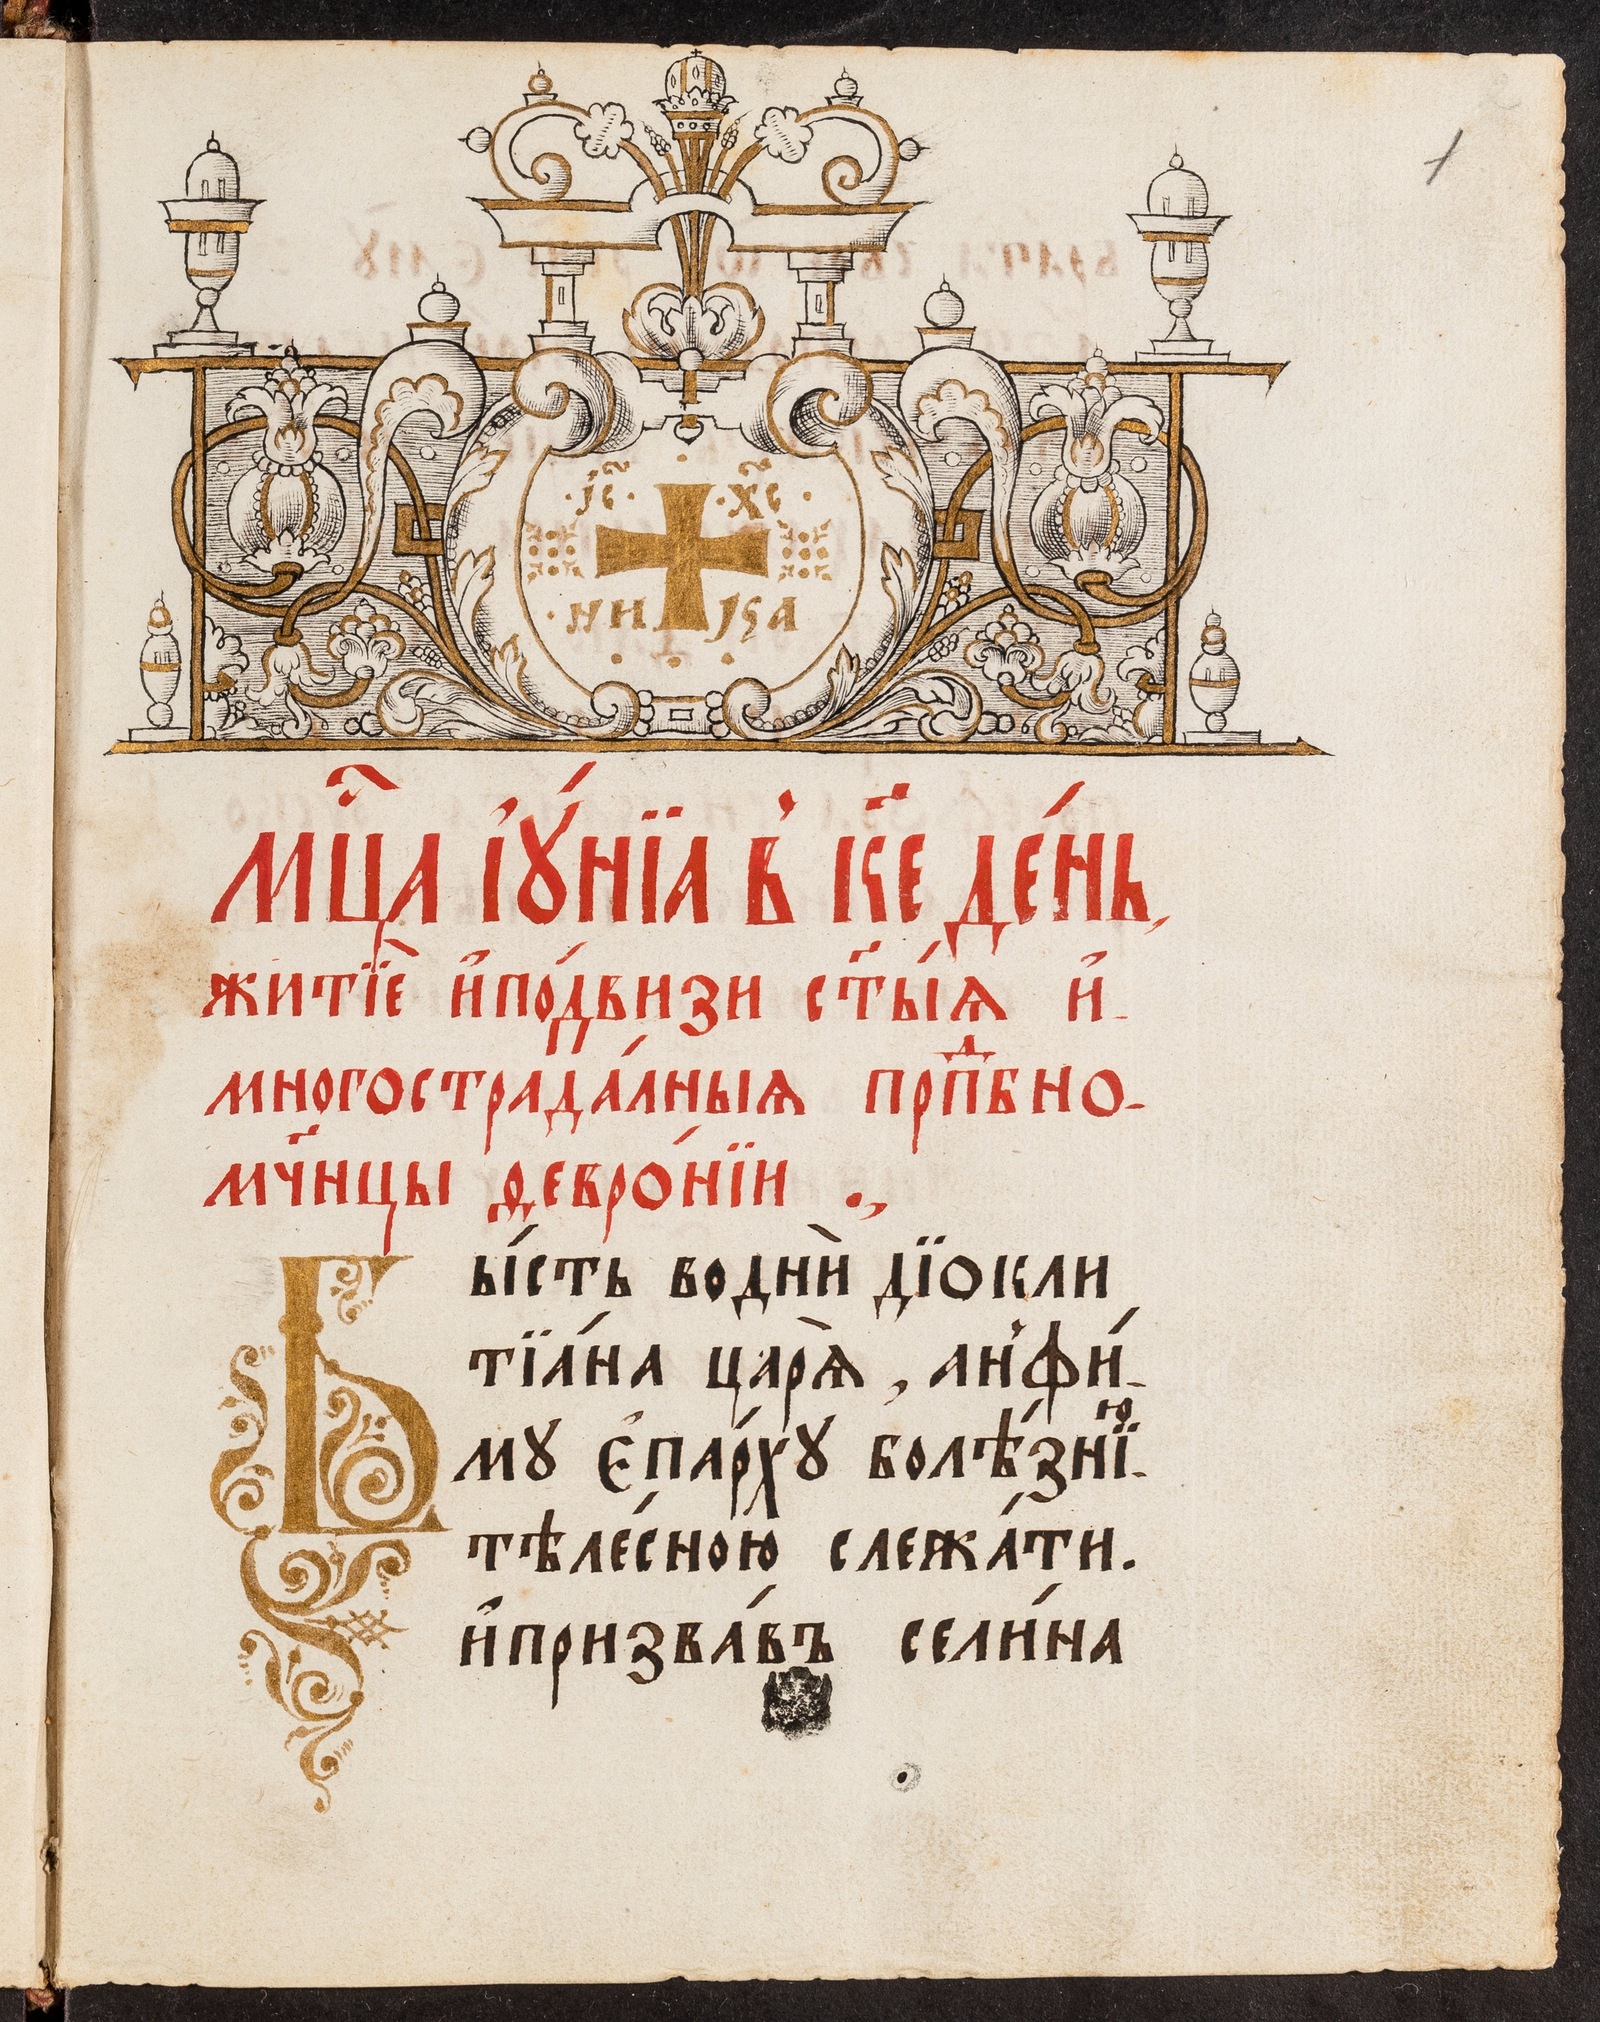 1
І҃С Х҃С
НИ КА
Мц҃а іꙋ́нїа в̾ к҃е де́нь,
житїѐ и҆по́двизи ст҃ы́ѧ и҆
многострада́лныѧ прпⷣбно
мч҃нцы ѳевро́нїи .,
Бы́сть водни̑ дїокли
тїа́на царѧ̀, ан̾фи́
мꙋ є҆па́рхꙋ болѣ́знїю
тѣле́сною слежа́ти.
и҆призва́въ сели́на